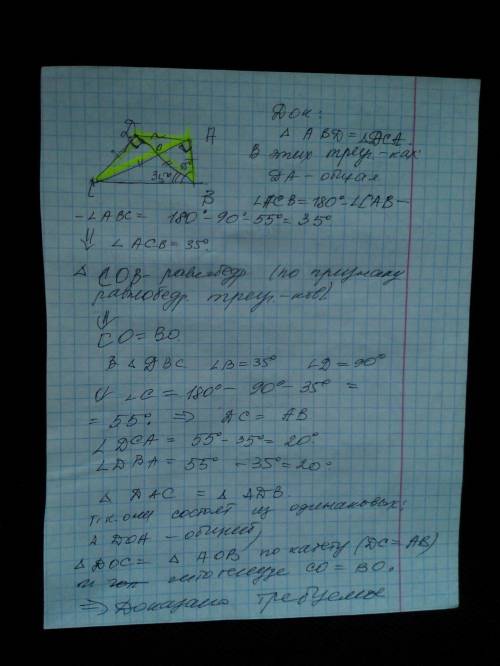 Док:
Δ ABD = ∠DCA
В этих треуг.-ках
DA - общая
∠ACB = 180° - ∠CAB -
- ∠ABC = 180° - 90° - 55° = 35°
⇓ ∠ACB = 35°
Δ COB - равнобедр. (по признаку
равнобедр. треуг-ков)
⇓
CO = BO.
В Δ DBC ∠B = 35° ∠D = 90°
⇓ ∠C = 180° - 90° - 35° =
= 55° ⇒ DC = AB
∠DCA = 55° - 35° = 20°
∠DBA = 55° - 35° = 20°
Δ DAC = Δ ADB.
т.к. они состоят из одинаковых:
Δ DOA - общий)
Δ DOC = Δ AOB по катету (DC = AB)
и гипотенузе CO = BO.
⇒ Доказано требуемое
D A
O
35°
C B